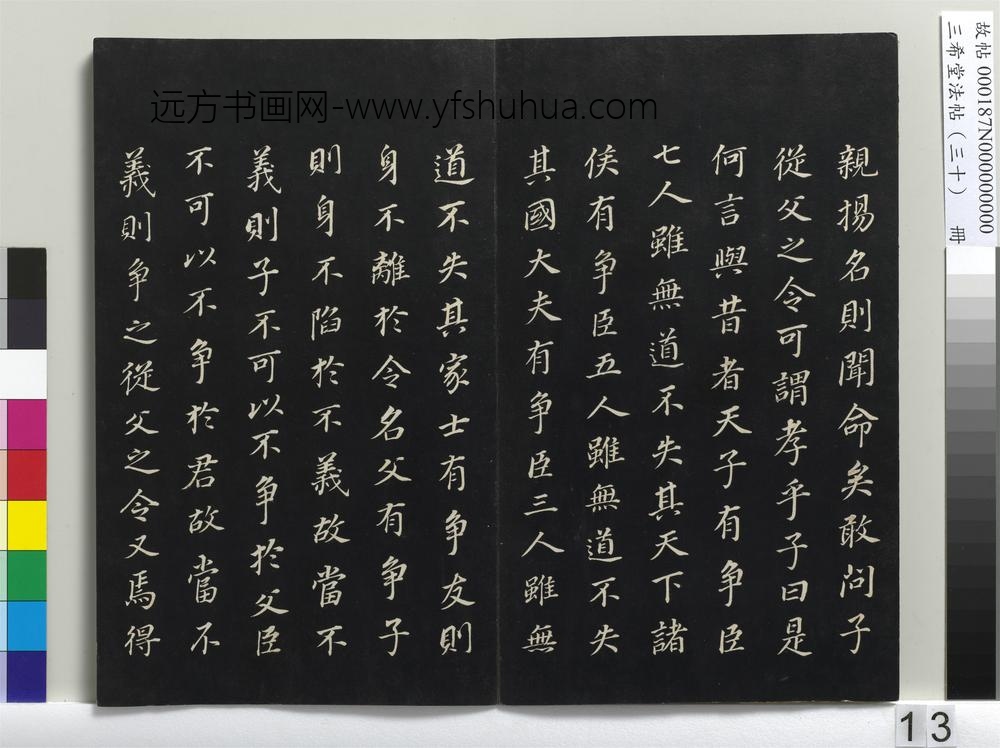 远方书画网-www.yfshuhua.com
親揚名則聞命矣敢问子
從父之令可謂孝乎子曰是
何言與昔者天子有争臣
七人雖無道不失其天下諸
侯有争臣五人雖無道不失
其國大夫有争臣三人雖無
道不失其家士有争友則
身不離於令名父有争子
則身不陷於不義故當不
義則子不可以不争於父臣
不可以不争於君故當不
義則争之從父之令又焉得
故帖 000187N000000000
三希堂法帖（三十） 冊
13